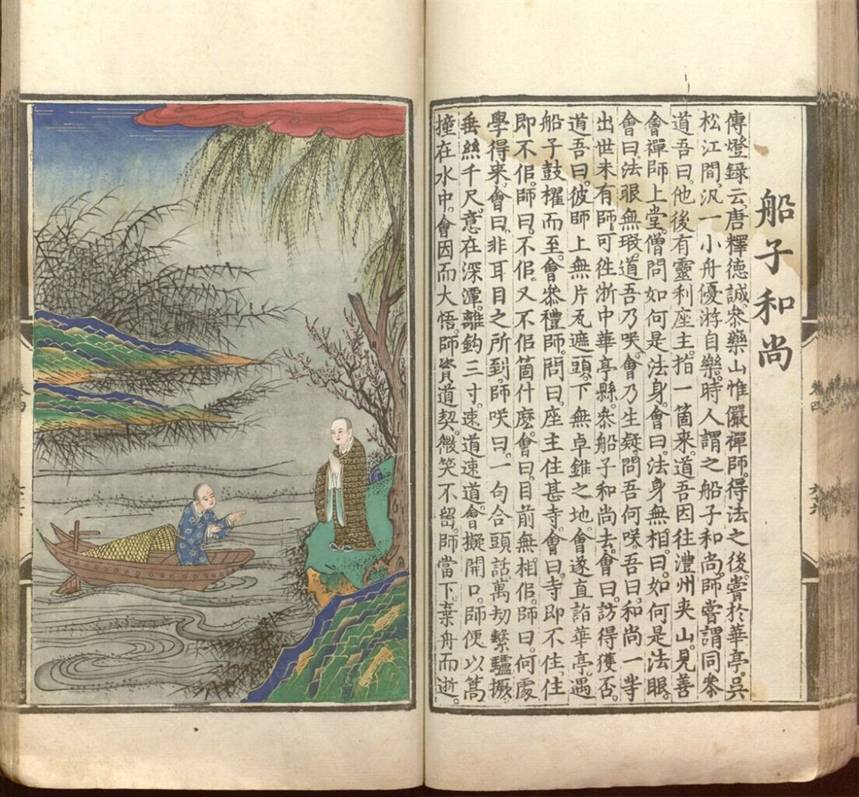 船子和尚
傳燈錄云。唐釋德誠。叅藥山惟儼禪師。得法之後。嘗於華亭。吳
松江間。汎一小舟。優游自樂。時人謂之船子和尚。師嘗謂同叅
道吾曰。他後有靈利座主。指一箇来。道吾因往澧州夾山。見善
會禪師上堂。僧問如何是法身。會曰。法身無相。曰。如何是法眼。
會曰。法眼無瑕。道吾乃咲。會乃生疑。問吾何咲。吾曰。和尚一等
出世未有師。可徃浙中華亭縣。叅船子和尚去。會曰。訪得獲否。
道吾曰。彼師上無片瓦遮頭。下無卓錐之地。會遂直詣華亭。遇
船子鼓櫂而至。會叅禮師。問曰。座主住甚寺。會曰。寺即不住。住
即不佀。師曰。不佀。又不佀箇什麽。會曰。目前無相佀。師曰。何處
學得来。會曰。非耳目之所到。師咲曰。一句合頭話。萬劫繫驢橛。
垂絲千尺。意在深潭。離鈎三寸。速道速道。會擬開口。師便以篙
撞在水中。會因而大悟。師資道契。微笑不留。師當下棄舟而逝。